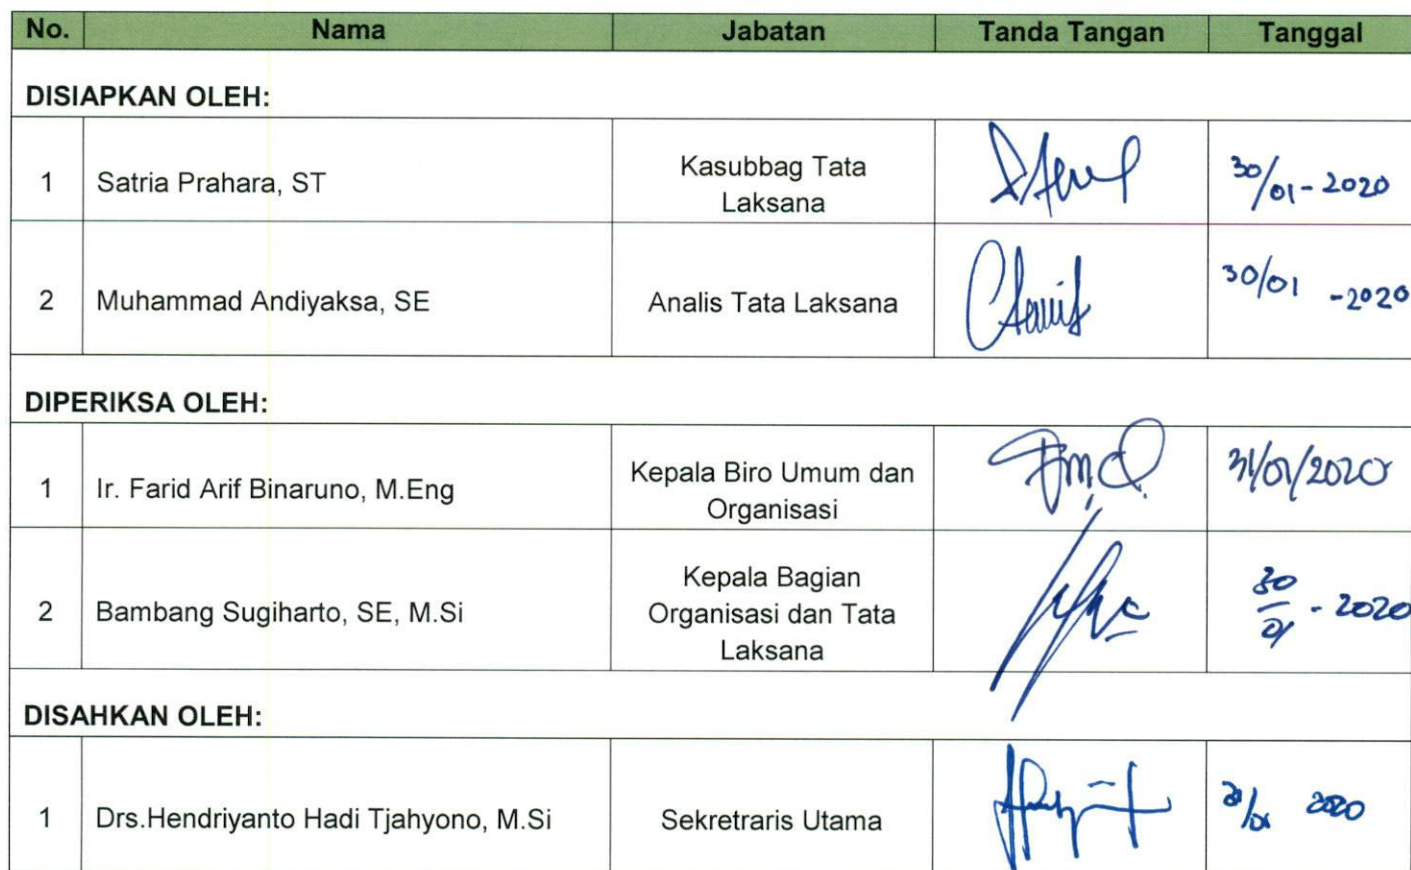 No. Nama Jabatan Tanda Tangan Tanggal
DISIAPKAN OLEH:
1 Satria Prahara, ST Kasubbag Tata Laksana 30/01-2020
2 Muhammad Andiyaksa, SE Analis Tata Laksana 30/01 -2020
DIPERIKSA OLEH:
1 Ir. Farid Arif Binaruno, M.Eng Kepala Biro Umum dan Organisasi 31/01/2020
2 Bambang Sugiharto, SE, M.Si Kepala Bagian Organisasi dan Tata Laksana 30/01 - 2020
DISAHKAN OLEH:
1 Drs.Hendriyanto Hadi Tjahyono, M.Si Sekretraris Utama 2020